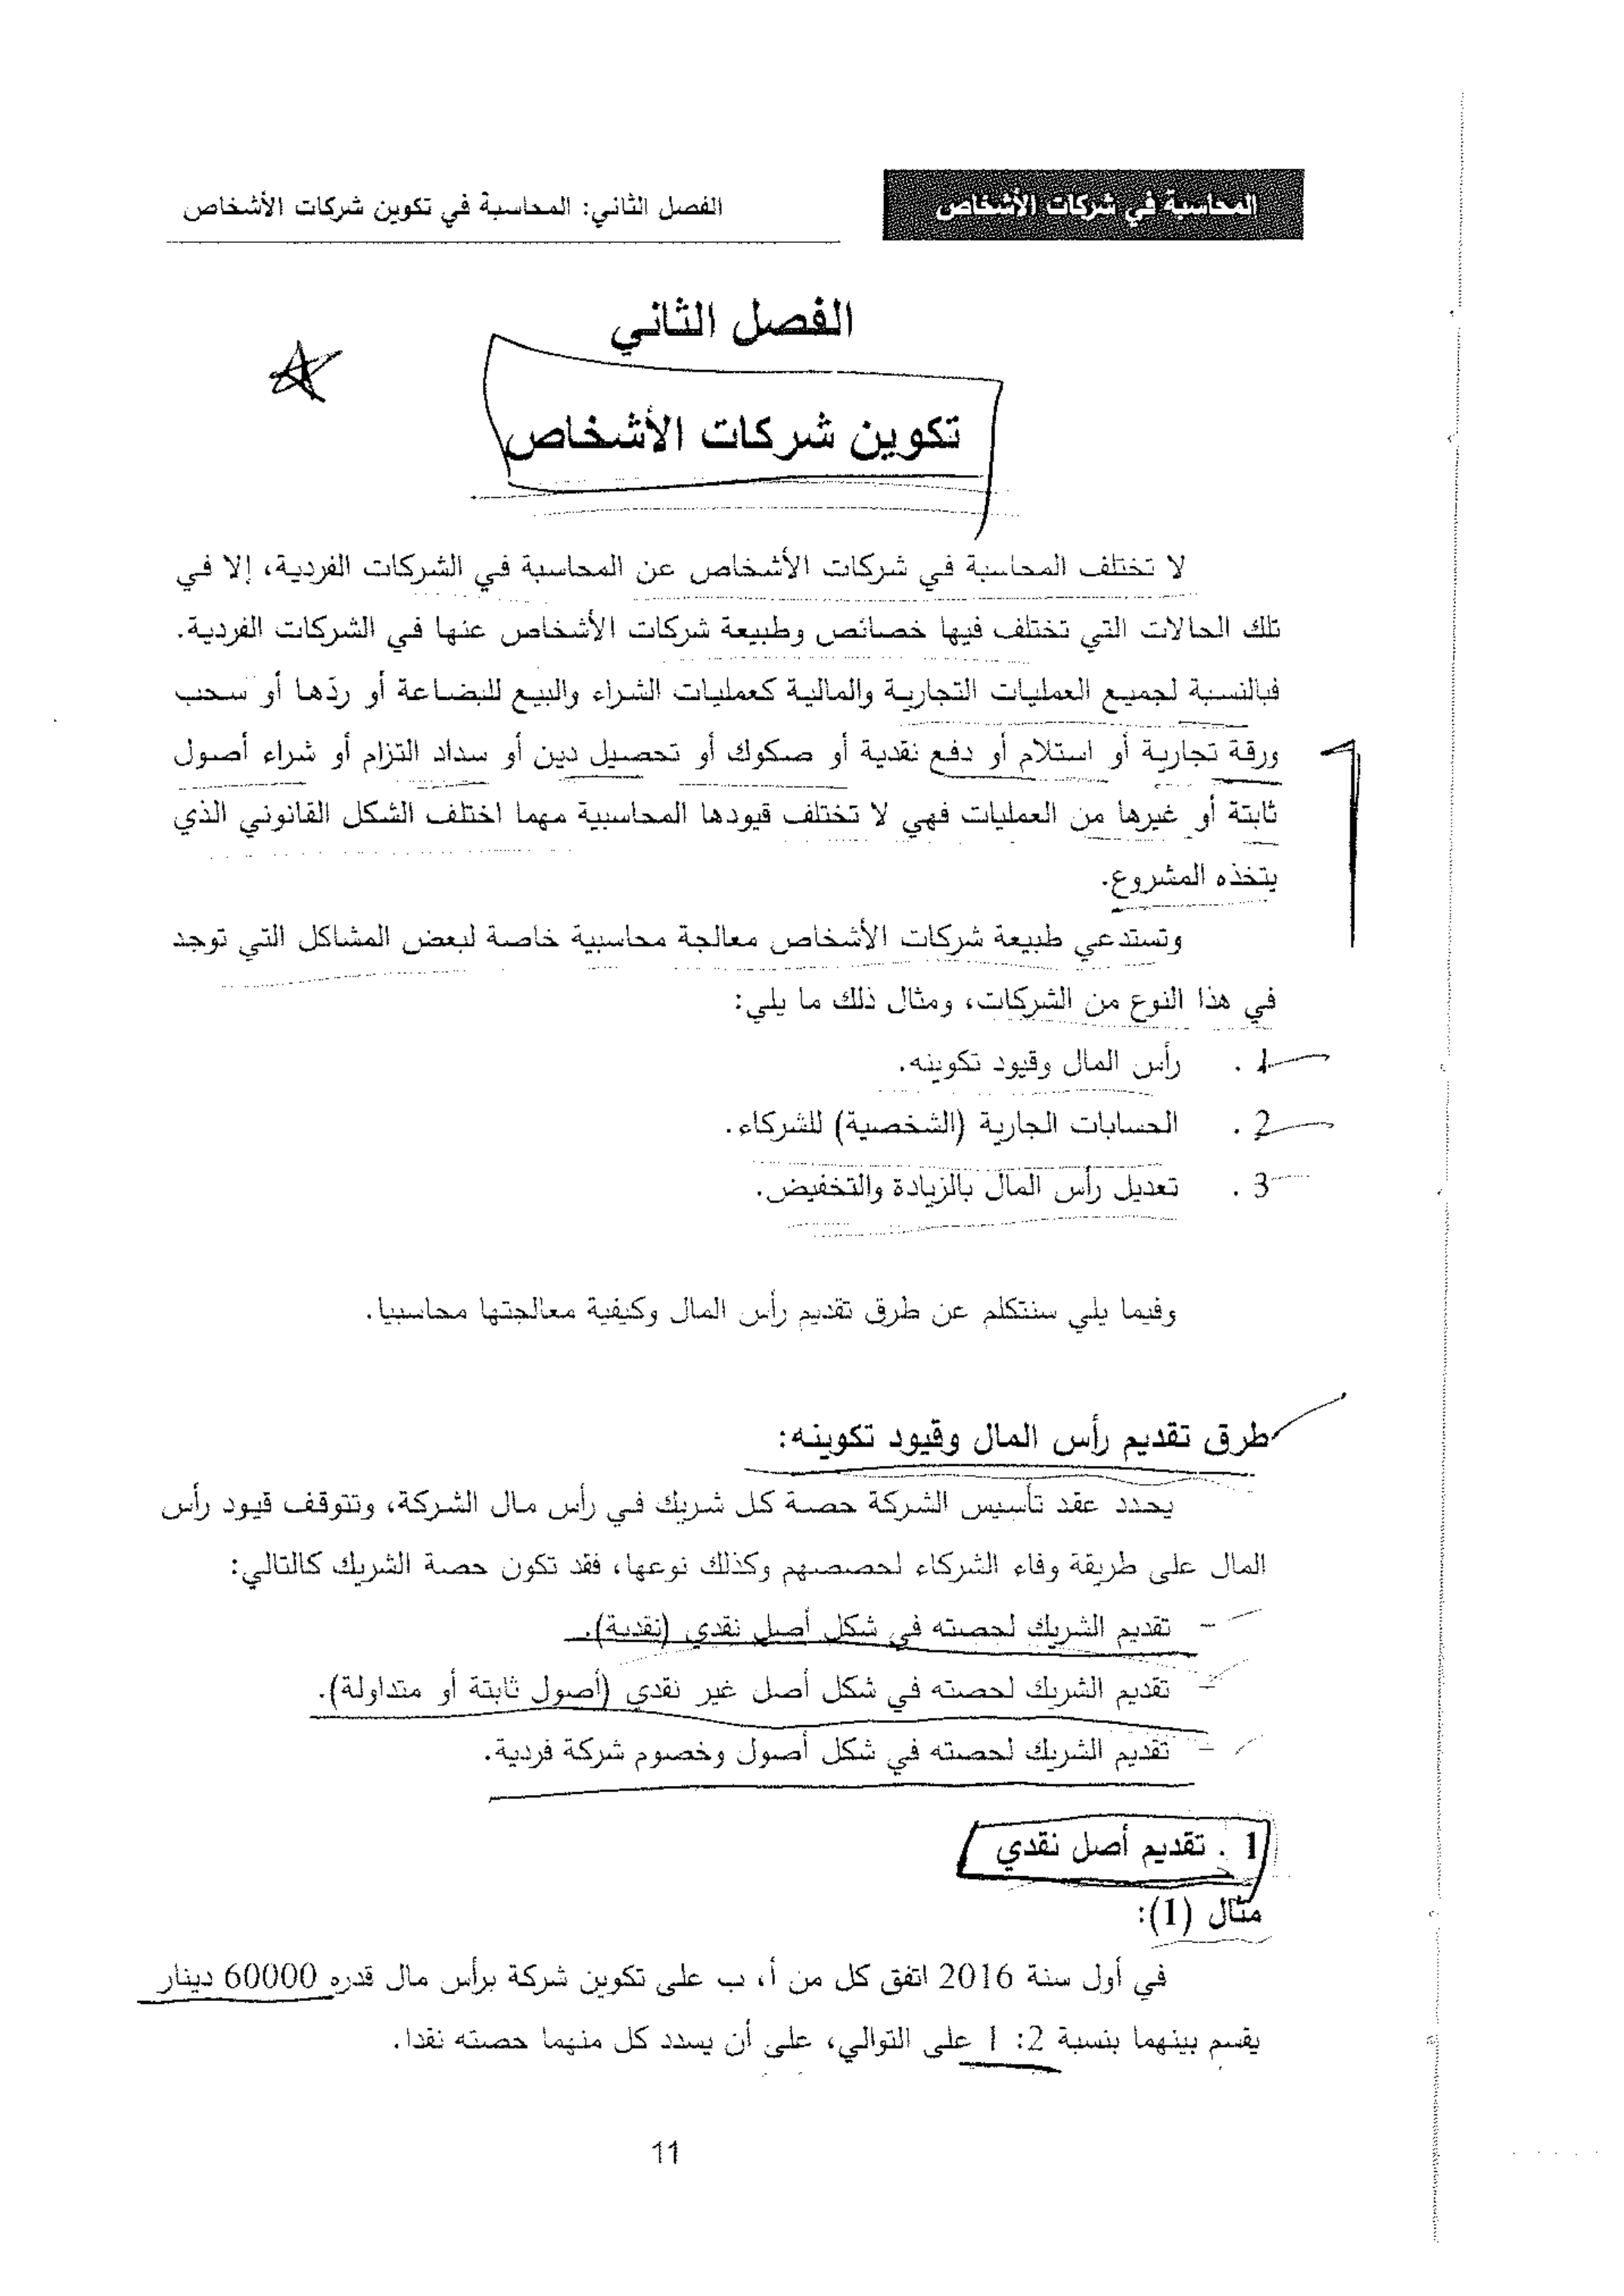 المحاسبة في شركات الأشخاص
الفصل الثاني: المحاسبة في تكوين شركات الأشخاص
الفصل الثاني
تكوين شركات الأشخاص
لا تختلف المحاسبة في شركات الأشخاص عن المحاسبة في الشركات الفردية، إلا في
تلك الحالات التي تختلف فيها خصائص وطبيعة شركات الأشخاص عنها في الشركات الفردية.
فبالنسبة لجميع العمليات التجارية والمالية كعمليات الشراء والبيع للبضاعة أو ردّها أو سحب
ورقة تجارية أو استلام أو دفع نقدية أو صكوك أو تحصيل دين أو سداد التزام أو شراء أصول
ثابتة أو غيرها من العمليات فهي لا تختلف قيودها المحاسبية مهما اختلف الشكل القانوني الذي
يتخذه المشروع.
وتستدعي طبيعة شركات الأشخاص معالجة محاسبية خاصة لبعض المشاكل التي توجد
في هذا النوع من الشركات، ومثال ذلك ما يلي:
1 . رأس المال وقيود تكوينه.
2 . الحسابات الجارية (الشخصية) للشركاء.
3 . تعديل رأس المال بالزيادة والتخفيض.
وفيما يلي سنتكلم عن طرق تقديم رأس المال وكيفية معالجتها محاسبيا.
طرق تقديم رأس المال وقيود تكوينه:
يحدد عقد تأسيس الشركة حصة كل شريك في رأس مال الشركة، وتتوقف قيود رأس
المال على طريقة وفاء الشركاء لحصصهم وكذلك نوعها، فقد تكون حصة الشريك كالتالي:
- تقديم الشريك لحصته في شكل أصل نقدي (نقدية).
- تقديم الشريك لحصته في شكل أصل غير نقدي (أصول ثابتة أو متداولة).
- تقديم الشريك لحصته في شكل أصول وخصوم شركة فردية.
1 . تقديم أصل نقدي
مثال (1):
في أول سنة 2016 اتفق كل من أ، ب على تكوين شركة برأس مال قدره 60000 دينار
يقسم بينهما بنسبة 2: 1 على التوالي، على أن يسدد كل منهما حصته نقدا.
11